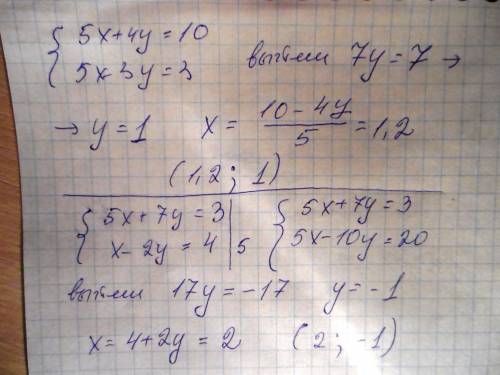 { 5x+4y=10
5x-3y=3 вычтем 7y=7 →
→ y=1 x = (10-4y)/5 = 1,2
(1,2; 1)
{ 5x+7y=3 | { 5x+7y=3
x-2y=4 | 5 5x-10y=20
вычтем 17y=-17 y=-1
x=4+2y=2 (2; -1)